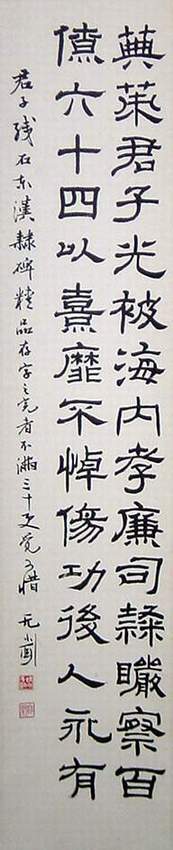 蕪萊君子光被海内孝廉司隸察百
僚六十四以熹靡不悼傷功後人永有
君子残石东漢隸碑精品存字之完者不滿三十更觉可惜